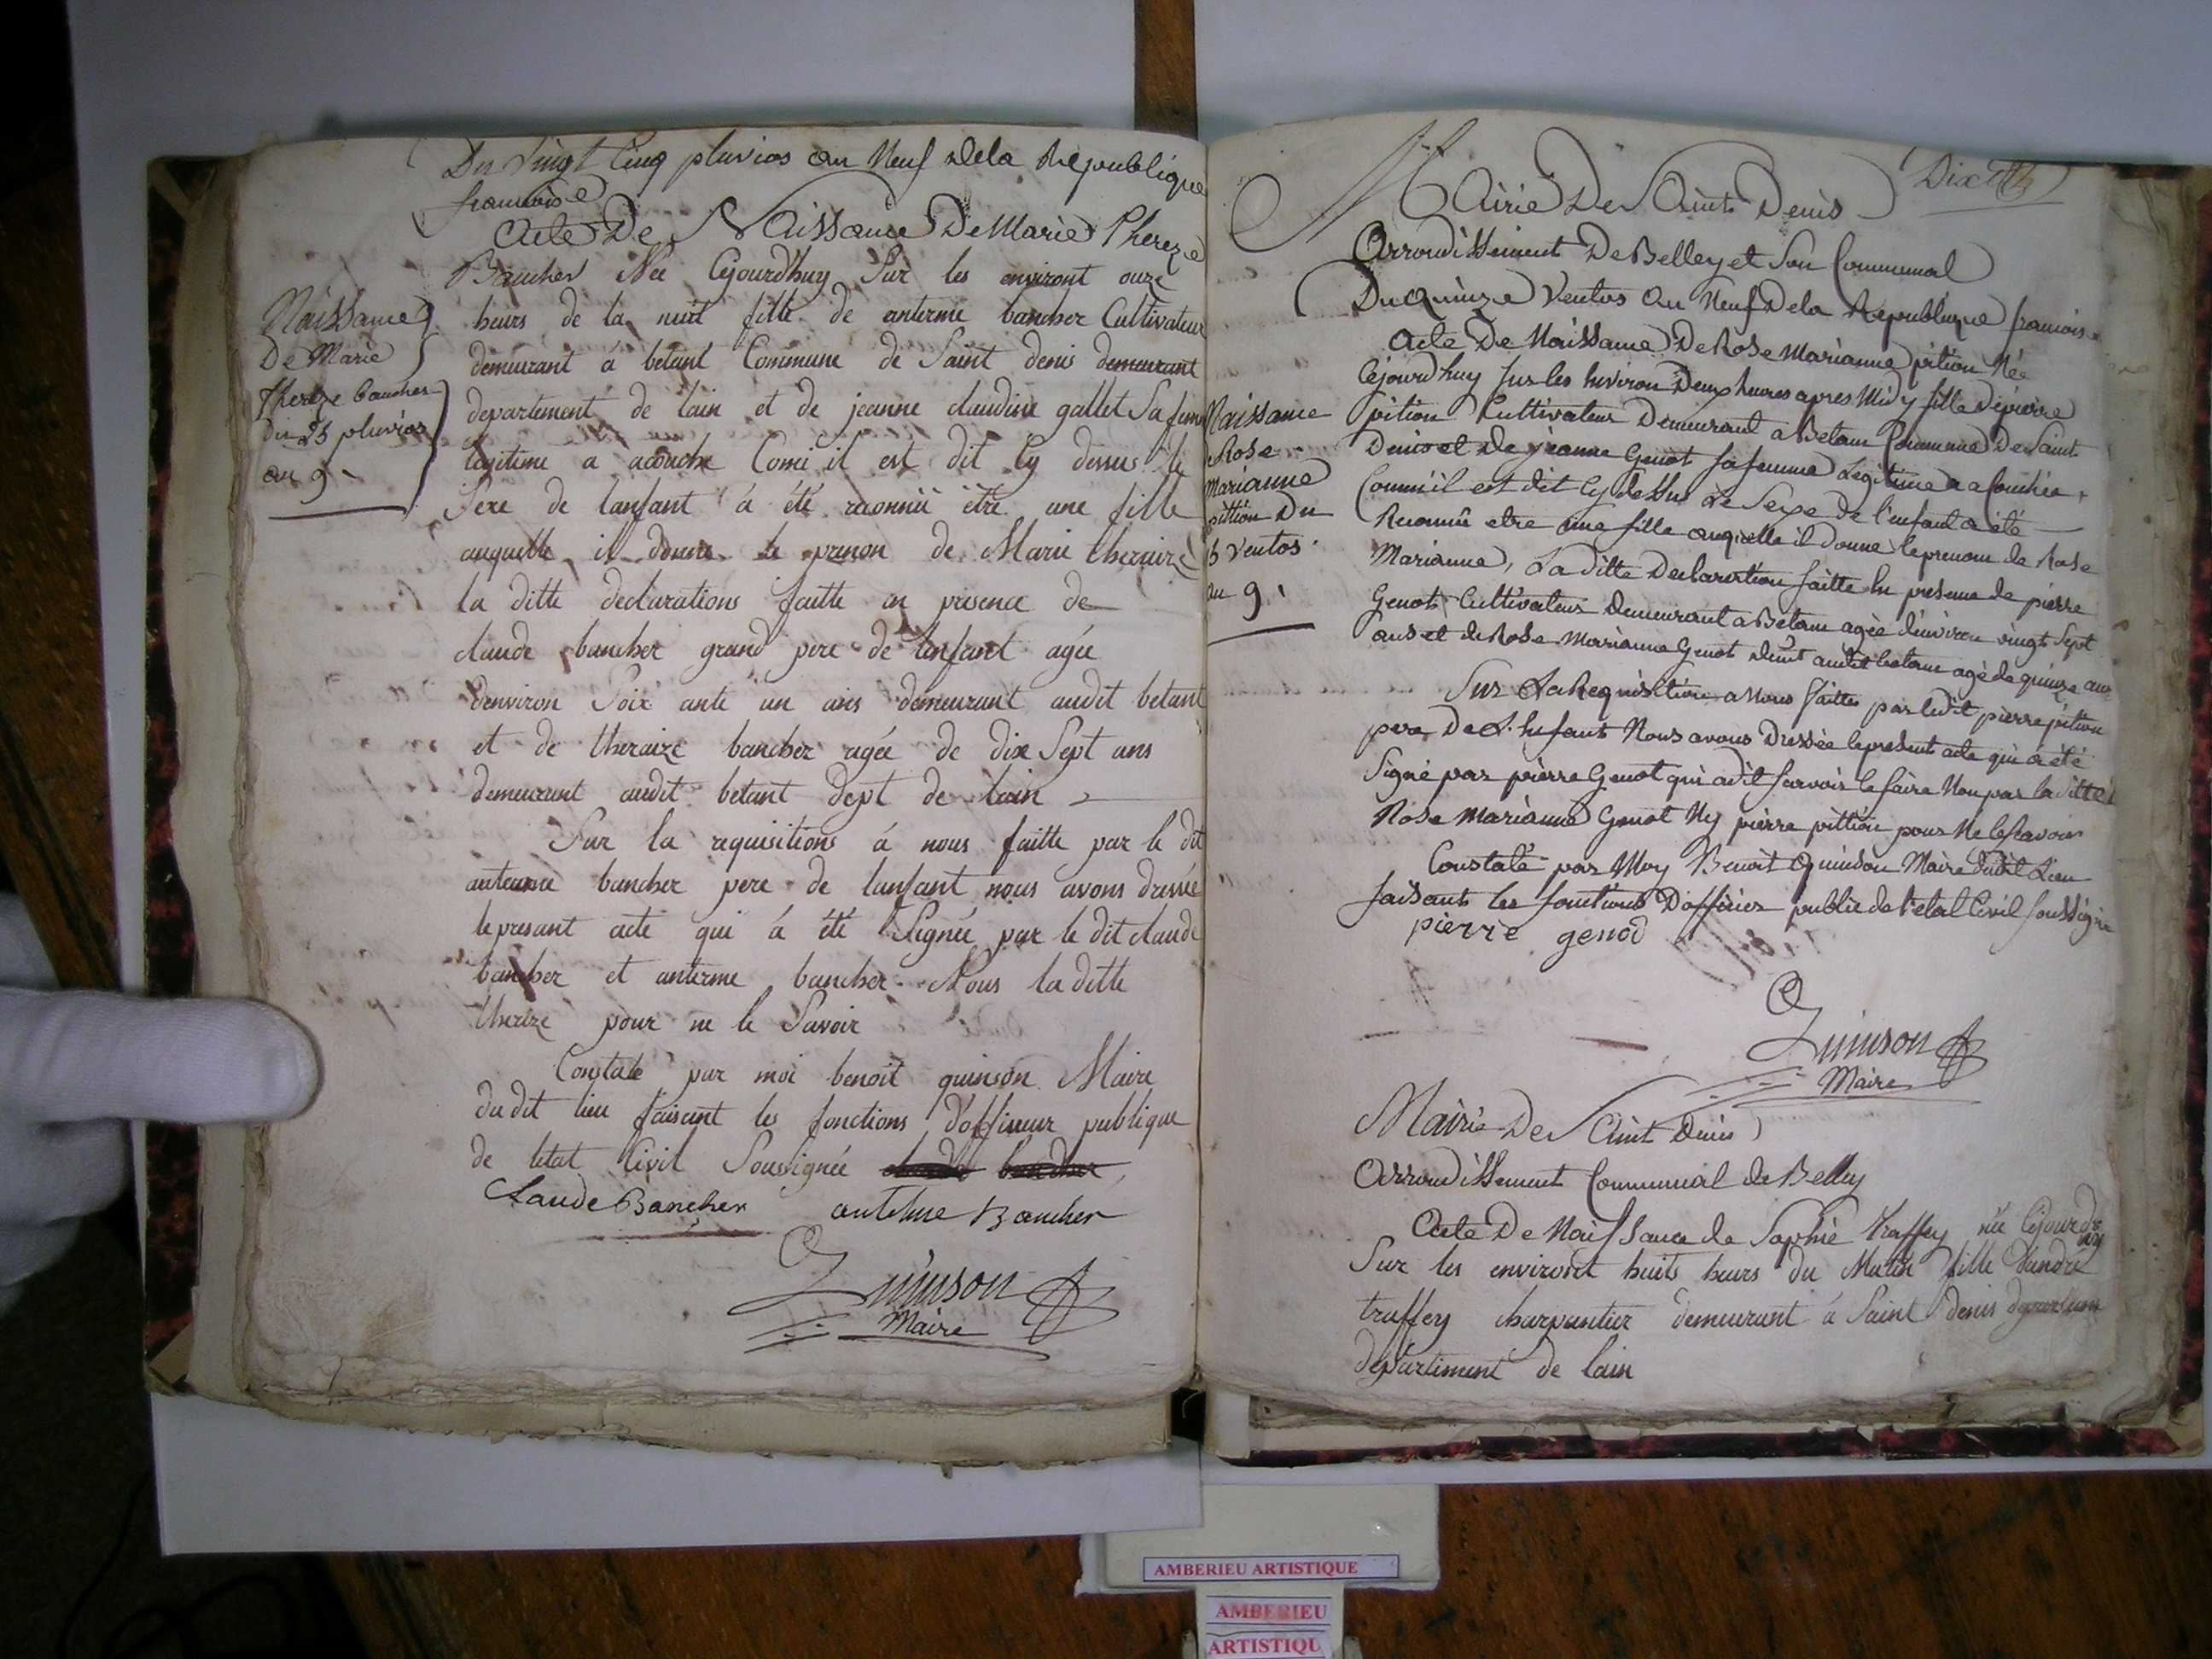 Du Vingt Cinq pluvios an Neuf dela Republique
francoise
Acte De Naissance De Marie Thereze
Bancher Née Cejourdhuy Sur les environt onze
heurs de la nuit fille de anterme bancher Cultivateur
demeurant à betant Commune de Saint denis demeurant
departement de lain et de jeanne claudine gallet Sa fame
legitime a acouche Comi il est dit Cy dessus le
Sexe de lanfant à été reconnü être une fille
auquelle il donne le prenon de Marie theraize
la ditte declarations faitte en presence de
claude bancher grand pere de lenfant agée
denviron Soix ante un ans demeurant audit betant
et de theraize bancher agée de dix Sept ans
demeurant audit betant dept de lain
Sur la requisitions á nous faitte par le dit
anteume bancher pere de lanfant nous avons dressée
le presant acte qui à été Signée par le dit claude
bancher et anterme bancher Nous la ditte
thereze pour ne le Savoir
Constaté par moi benoit quinson Maire
du dit lieu faisant les fonctions d'offissieur publique
de letat Civil Soussignée claude bancher
Claude Bancher antelme Bancher
Quinson
Maire
Naissance
De Marie
thereze bancher
du 25 pluvios
an 9
Dix
Mairie De Saint Denis
Arrondissement De Belley et Son Communal
Du Quinze Ventos an Neuf De la Republique francois
Acte De Naissance De Rose Marianne pition Née
Cejourdhuy Sur les Environ Deux heures apres Midy fille De pierre
pition Cultivateur Demeurant a Betan Commune De Saint
Denis et De jeanne Genot Sa femme Legitime a acouchée
Comm'il est dit Cy dessus Le Sexe de l'enfant a été
Reconnü etre une fille auquelle il Donne le prenom de Rose
Marianne, La ditte Declarartion faitte En presence de pierre
Genot Cultivateur Demeurant a Betan agée d'environ vingt Sept
ans et de Rose Marianne Genot dudit betan agé de quinze ans
Sur La Requisition a Nous faitte par ledit pierre pition
pere De L'Enfant Nous avons Dressée le present acte qui a été
Signé par pierre Genot qui a dit Savoir le faire Non par la ditte
Rose Marianne Genot Ny pierre pittion pour Ne le Savoir
Constaté par Moy Benoit Quinson Maire dudit Lieu
faisant les fonctions D'officier public de l'etat Civil Soussigné
pierre genod
Quinson
Maire
Naissance
Rose
Marianne
pittion Du
15 Ventos
an 9
Mairie De Saint Denis
Arrondissement Communal de Belley
Acte De Naissance de Sophie traffey née Cejourdhuy
Sur les environt huits heurs du Matin fille dandré
traffey charpentier demeurant à Saint denis
departiment de lain
AMBERIEU ARTISTIQUE
AMBERIEU
ARTISTIQU